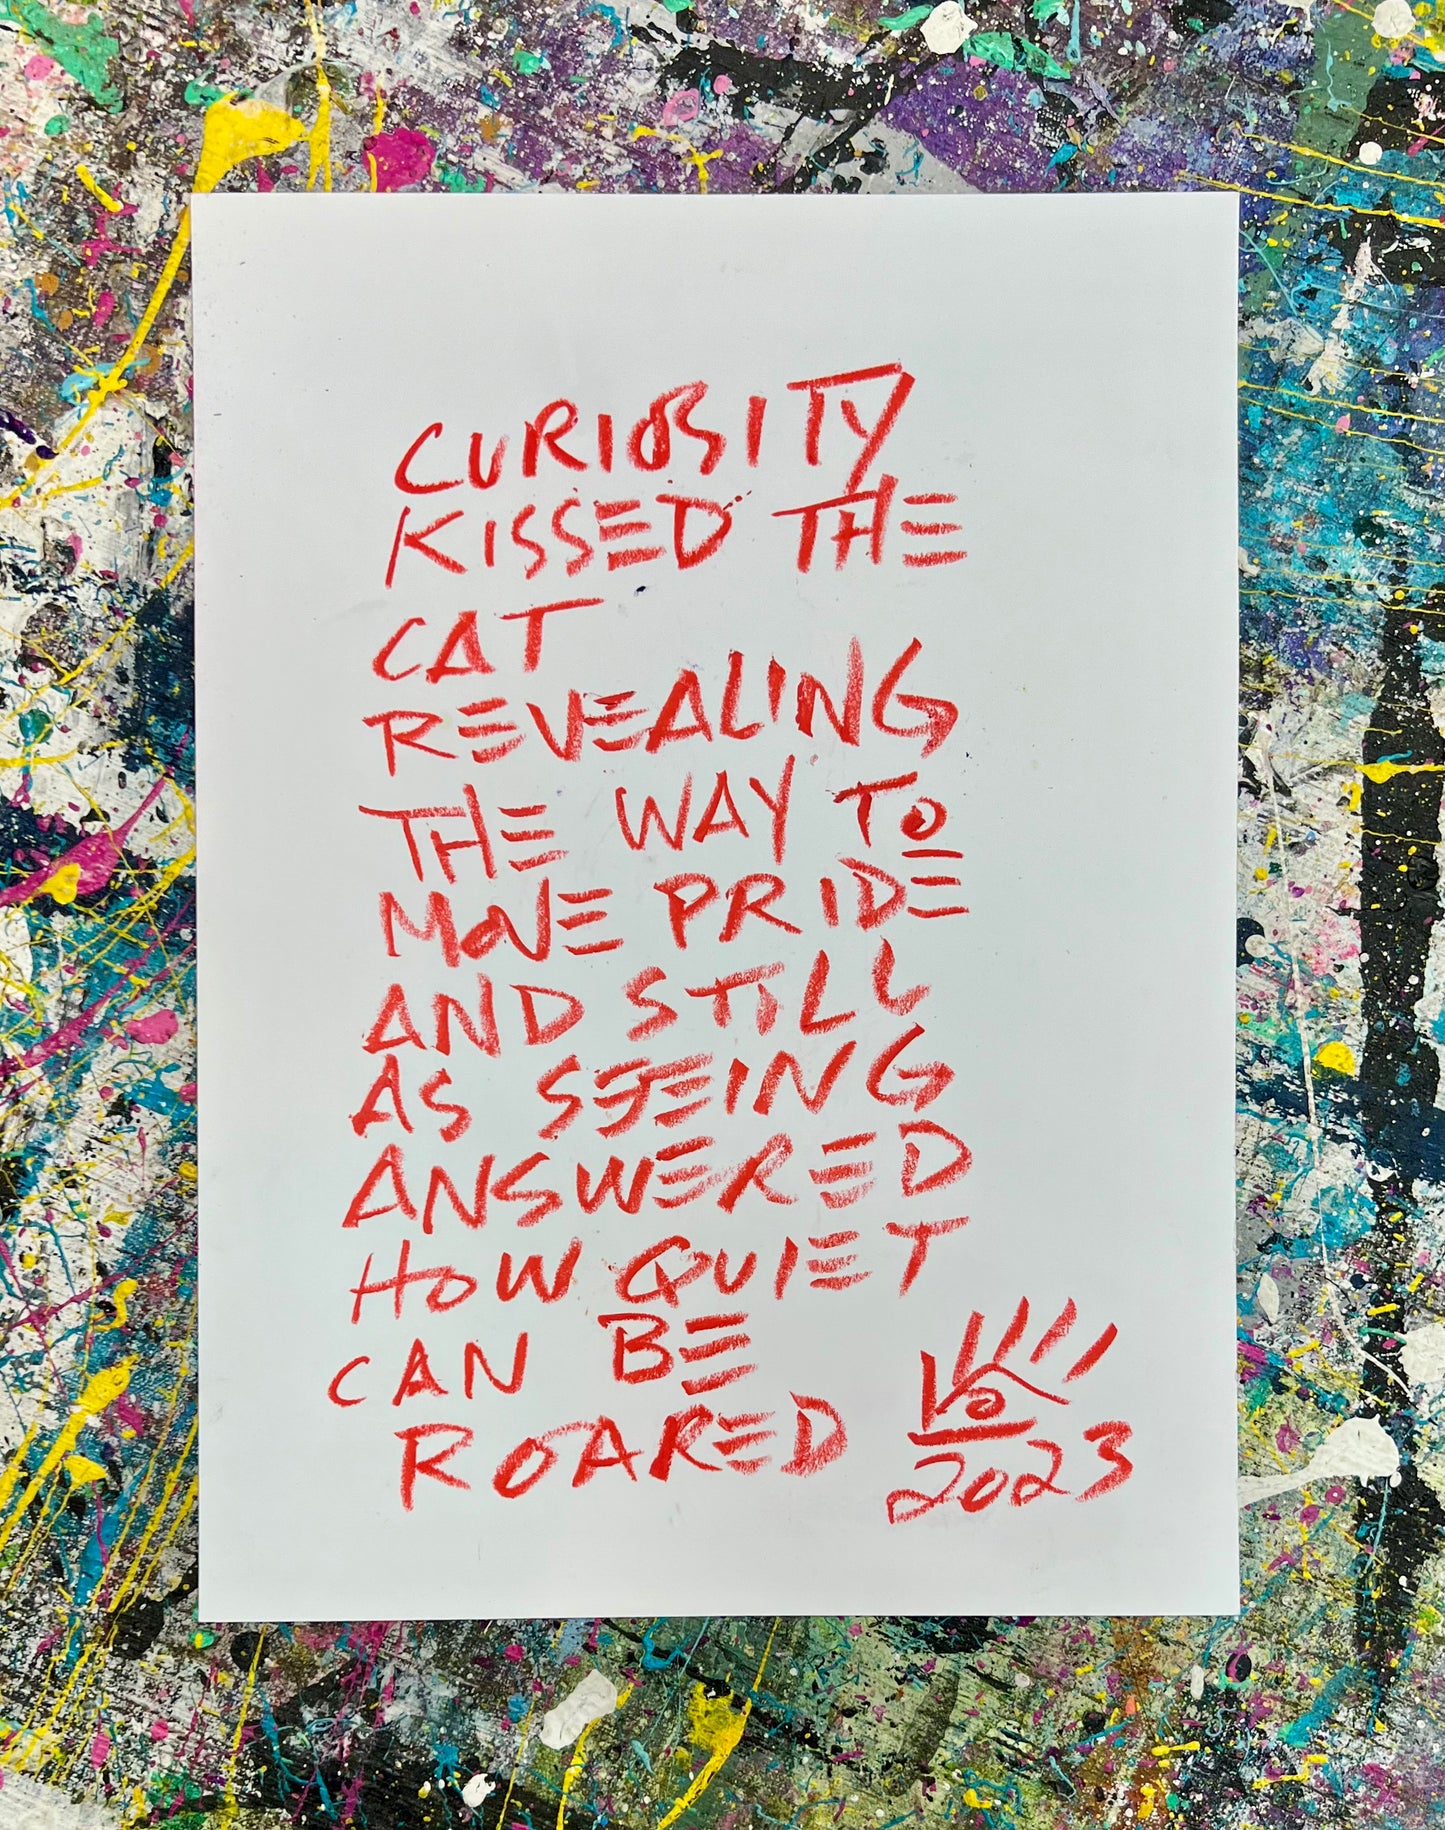 CURIOSITY
KISSED THE
CAT
REVEALING
THE WAY TO
MOVE PRIDE
AND STILL
AS SEEING
ANSWERED
HOW QUIET
CAN BE
ROARED
2023